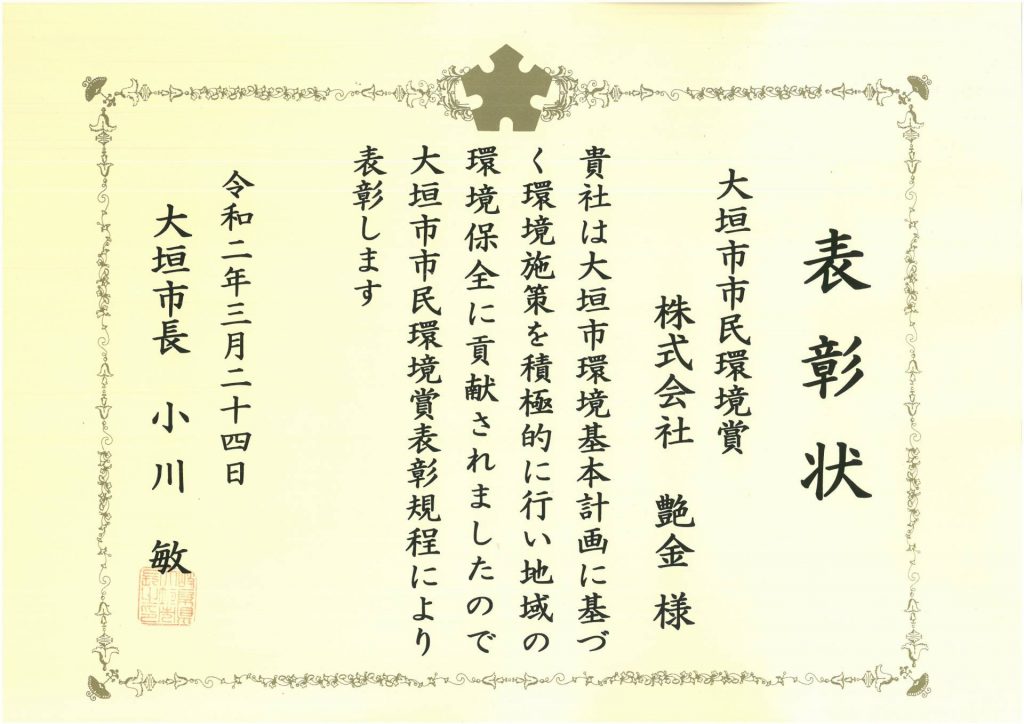 表彰状
大垣市市民環境賞
株式会社 艶金 様
貴社は大垣市環境基本計画に基づ
く環境施策を積極的に行い地域の
環境保全に貢献されましたので
大垣市市民環境賞表彰規程により
表彰します
令和二年三月二十四日
大垣市長 小川 敏